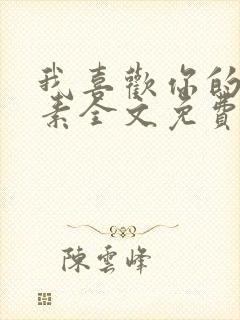 我喜歡你的
素全文免費
陳雲峰